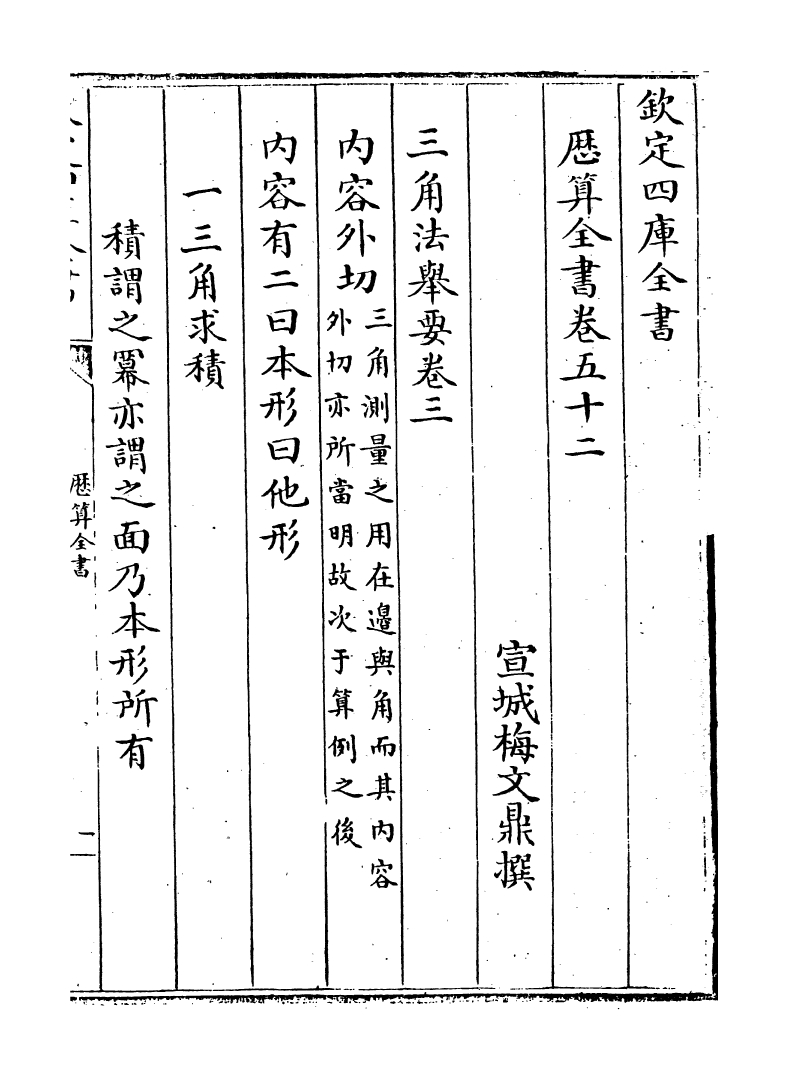 欽定四庫全書
厯算全書卷五十二
宣城梅文鼎撰
三角法舉要卷三
内容外切
三角測量之用在邉與角而其内容
外切亦所當明故次于算例之後
内容有二曰本形曰他形
一三角求積
積謂之冪亦謂之面乃本形所有
厯算全書